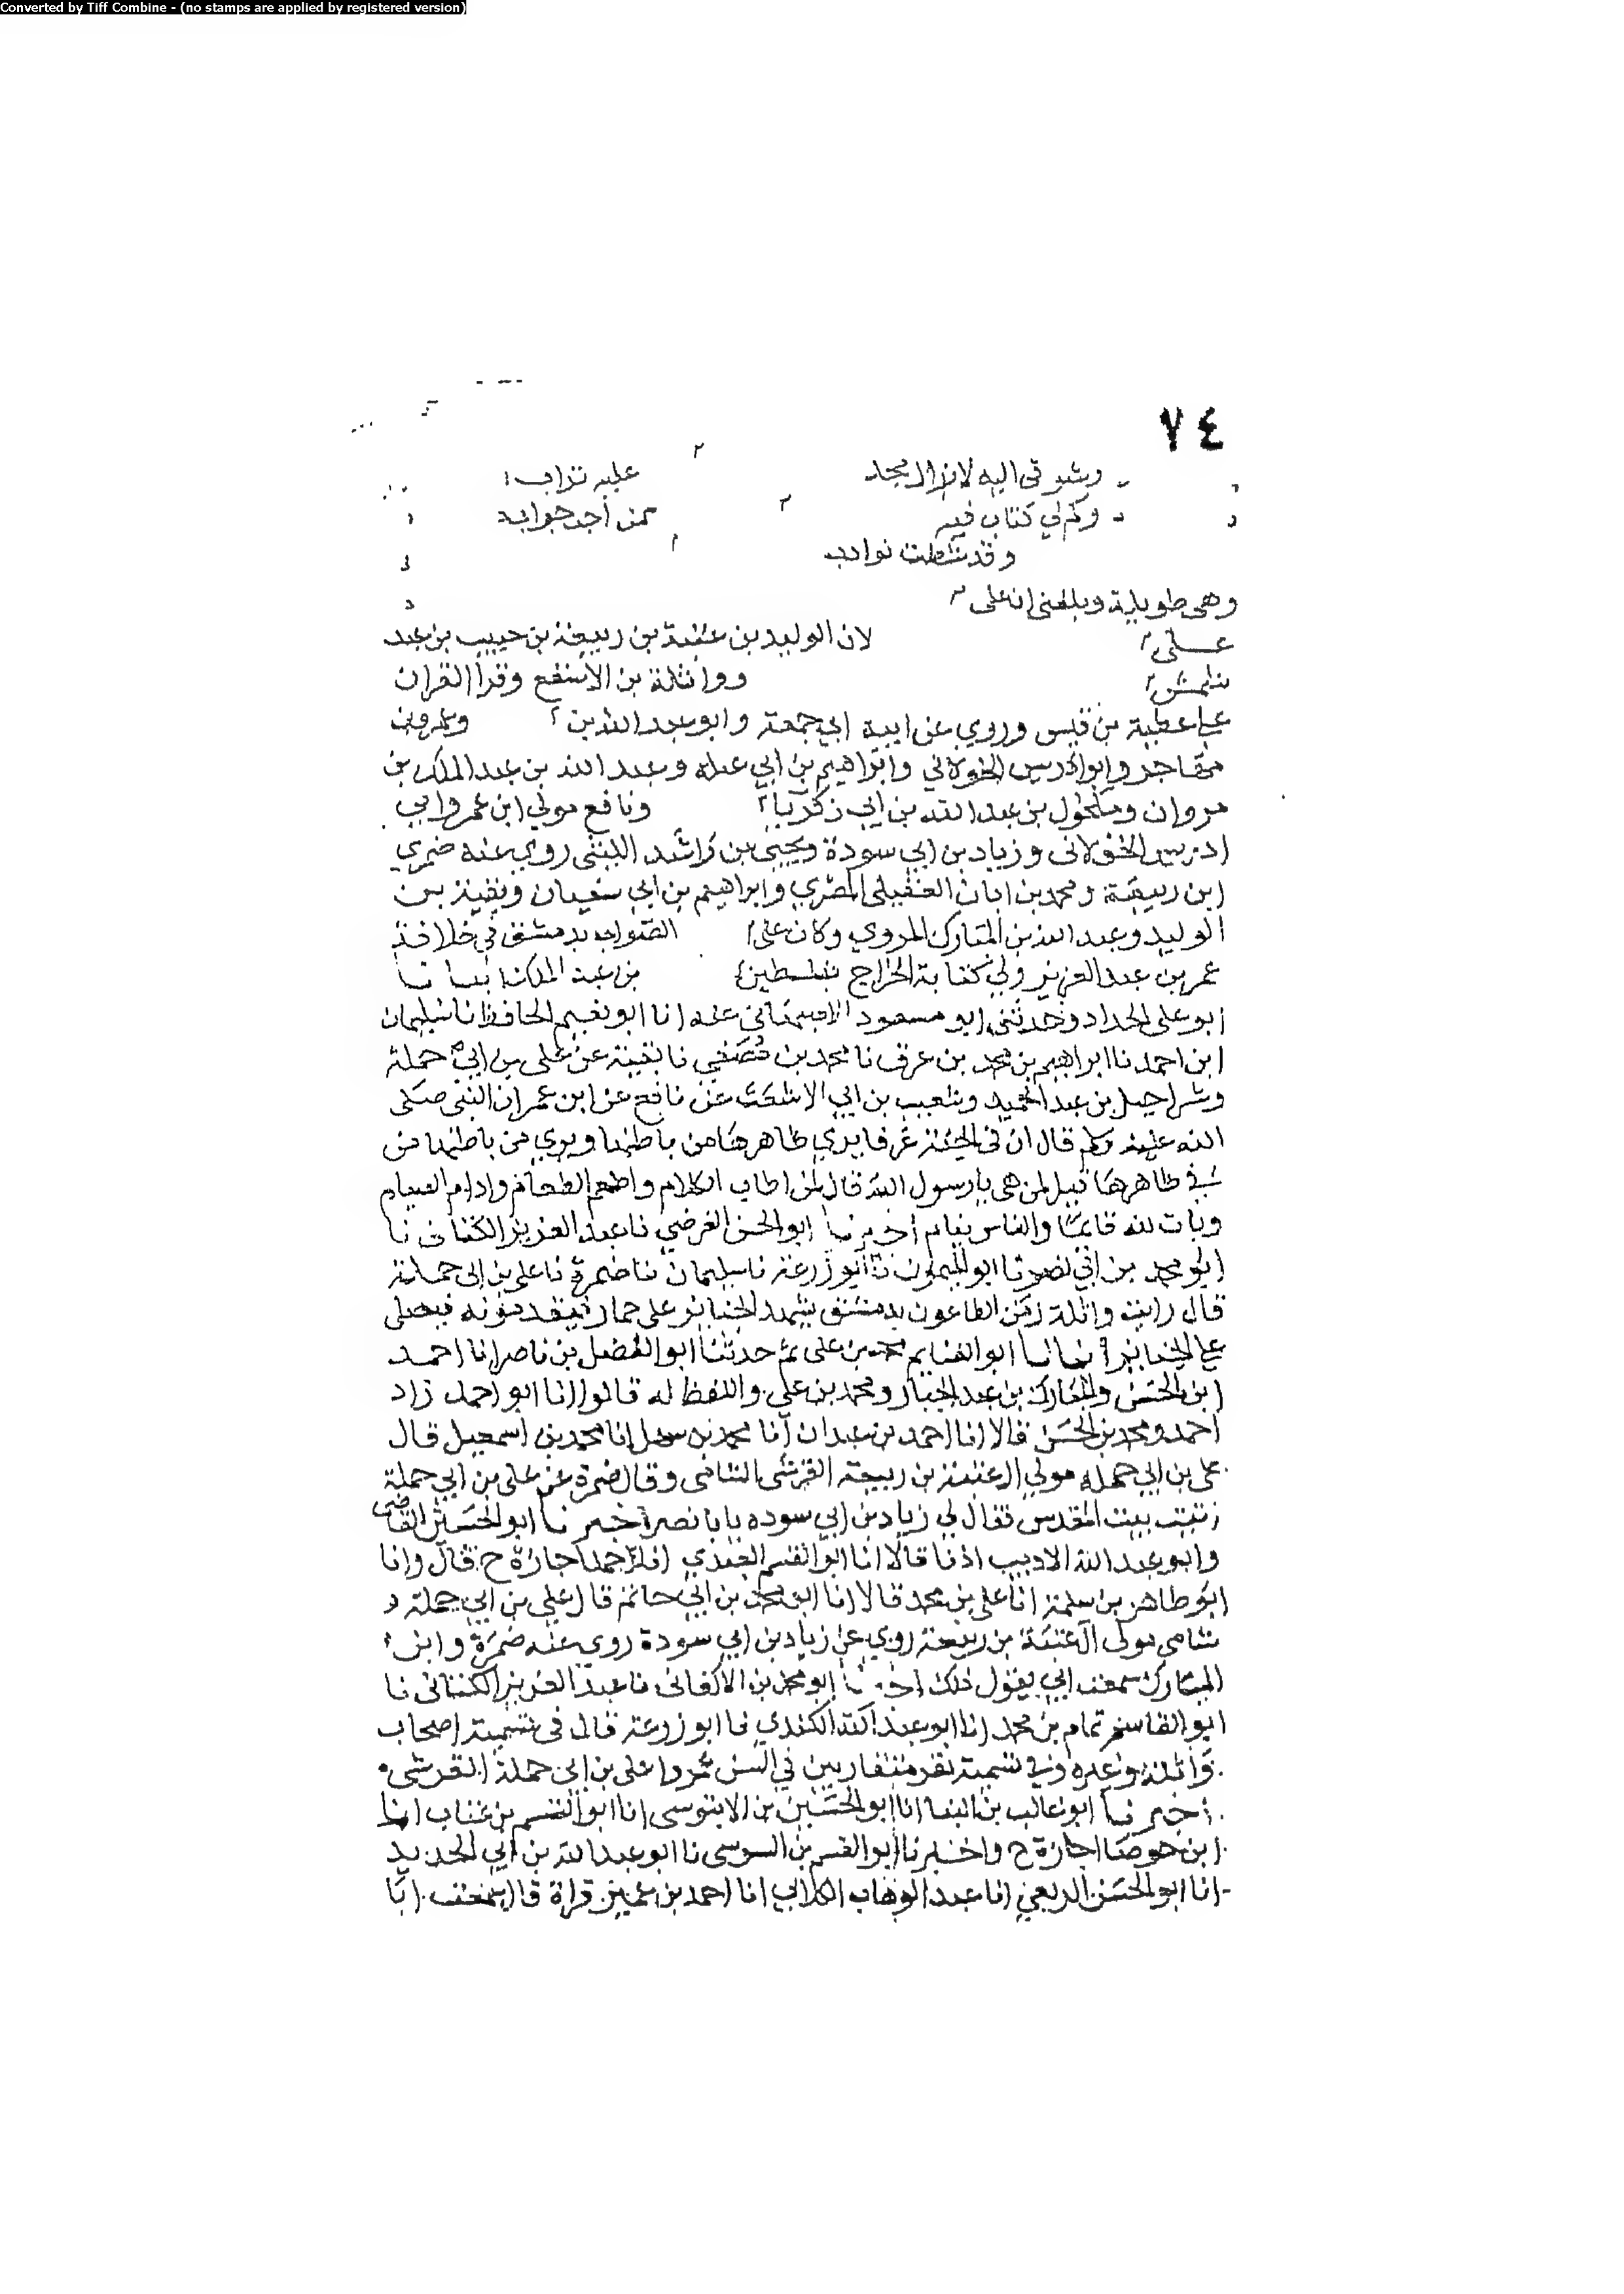 Converted by Tiff Combine - (no stamps are applied by registered version)
٧٤
وشوقي اليه لا يزال عليه تراب
وكم لي كتاب فيه أجد جوابه
وقد
وهي طويلة وبلغني ان علي
علي لان الوليد بن عتبة بن ربيعة بن حبيب بن عبد
شمس وواثلة بن الاسقع وقرا القران
علي عطية بن قيس وروي عن ابيه ابي جمعة وابو عبد الله بن وعمرو بن
مهاجر وابو ادريس الخولاني وابراهيم بن ابي عبله وعبد الله بن عبد الملك بن
مروان ومكحول بن عبد الله بن ابي زكريا ونافع مولي ابن عمر وابي
ادريس الخولاني وزياد بن ابي سودة ويحيي بن راشد الليثي روي عنه ضمري
ابن ربيعة ومحمد بن ابان العقيلي المصري وابراهيم بن ابي سفيان وبقية بن
الوليد وعبد الله بن المبارك المروي وكان علي الصواب بدمشق في خلافة
عمر بن عبد العزيز ولي كتابة الخراج بفلسطين بن عبد الملك انبانا
ابو علي الحداد وحدثني ابو مسعود الاصبهاني عنه انا ابو نعيم الحافظ نا سليمان
ابن احمد نا ابراهيم بن محمد بن عرق نا محمد بن مصفي نا بقية عن علي بن ابي حملة
وشراحيل بن عبد الحميد وشعيب بن ابي الاشعث عن نافع عن ابن عمر ان النبي صلي
الله عليه وسلم قال ان في الجنة غرفا يري ظاهرها من باطنها ويري من باطنها من
في ظاهرها قيل لمن هي يا رسول الله قال لمن اطاب الكلام واطعم الطعام وادام الصيام
وبات لله قايما والناس نيام اخبرنا ابو الحسن الفرضي نا عبد العزيز الكتاني نا
ابو محمد بن ابي نصر نا ابو الميمون نا ابو زرعة نا سليمان نا ضمرة نا علي بن ابي حملة
قال رايت واثلة زمن الطاعون بدمشق يشهد الجنايز علي حمار فيصلي
علي الجنايز انبانا ابو الغنايم محمد بن علي ثم حدثنا ابو الفضل بن ناصر انا احمد
ابن الحسن والمبارك بن عبد الجبار ومحمد بن علي واللفظ له قالوا انا ابو احمد زاد
احمد ومحمد بن الحسن قالا انا احمد بن عبدان انا محمد بن سهل انا محمد بن اسمعيل قال
علي بن ابي حمله مولي ال عتبة بن ربيعة القرشي الشامي وقال ضمرة عن علي بن ابي حملة
بيت المقدس فقال لي زياد بن ابي سوده يا با نصر اخبرنا ابو الحسين القاضي
وابو عبد الله الاديب اذنا قالا انا ابو القسم العبدي انا حمد اجازة ح قال وانا
ابو طاهر بن سلمة انا علي بن محمد قالا انا ابو محمد بن ابي حاتم قال علي بن ابي حملة
شامي مولي ال عتبة بن ربيعة روي عن زياد بن ابي سودة روي عنه ضمرة وابن
المبارك سمعت ابي يقول ذلك اخبرنا ابو محمد بن الاكفاني نا عبد العزيز الكتاني نا
ابو القاسم تمام بن محمد انا ابو عبد الله الكندي نا ابو زرعة قال في تسمية اصحاب
واثلة وغيره وفي تسمية نفر متقاربين في السن علي بن ابي حملة القرشي
اخبرنا ابو غالب بن البنا انا ابو الحسين بن الابنوسي انا ابو القسم بن عتاب انا
ابن حوصا اجازة ح واخبرنا ابو القسم بن السوسي نا ابو عبد الله بن ابي الحديد
انا ابو الحسن الربعي انا عبد الوهاب الكلابي انا احمد بن عمير قراة قال سمعت ابا